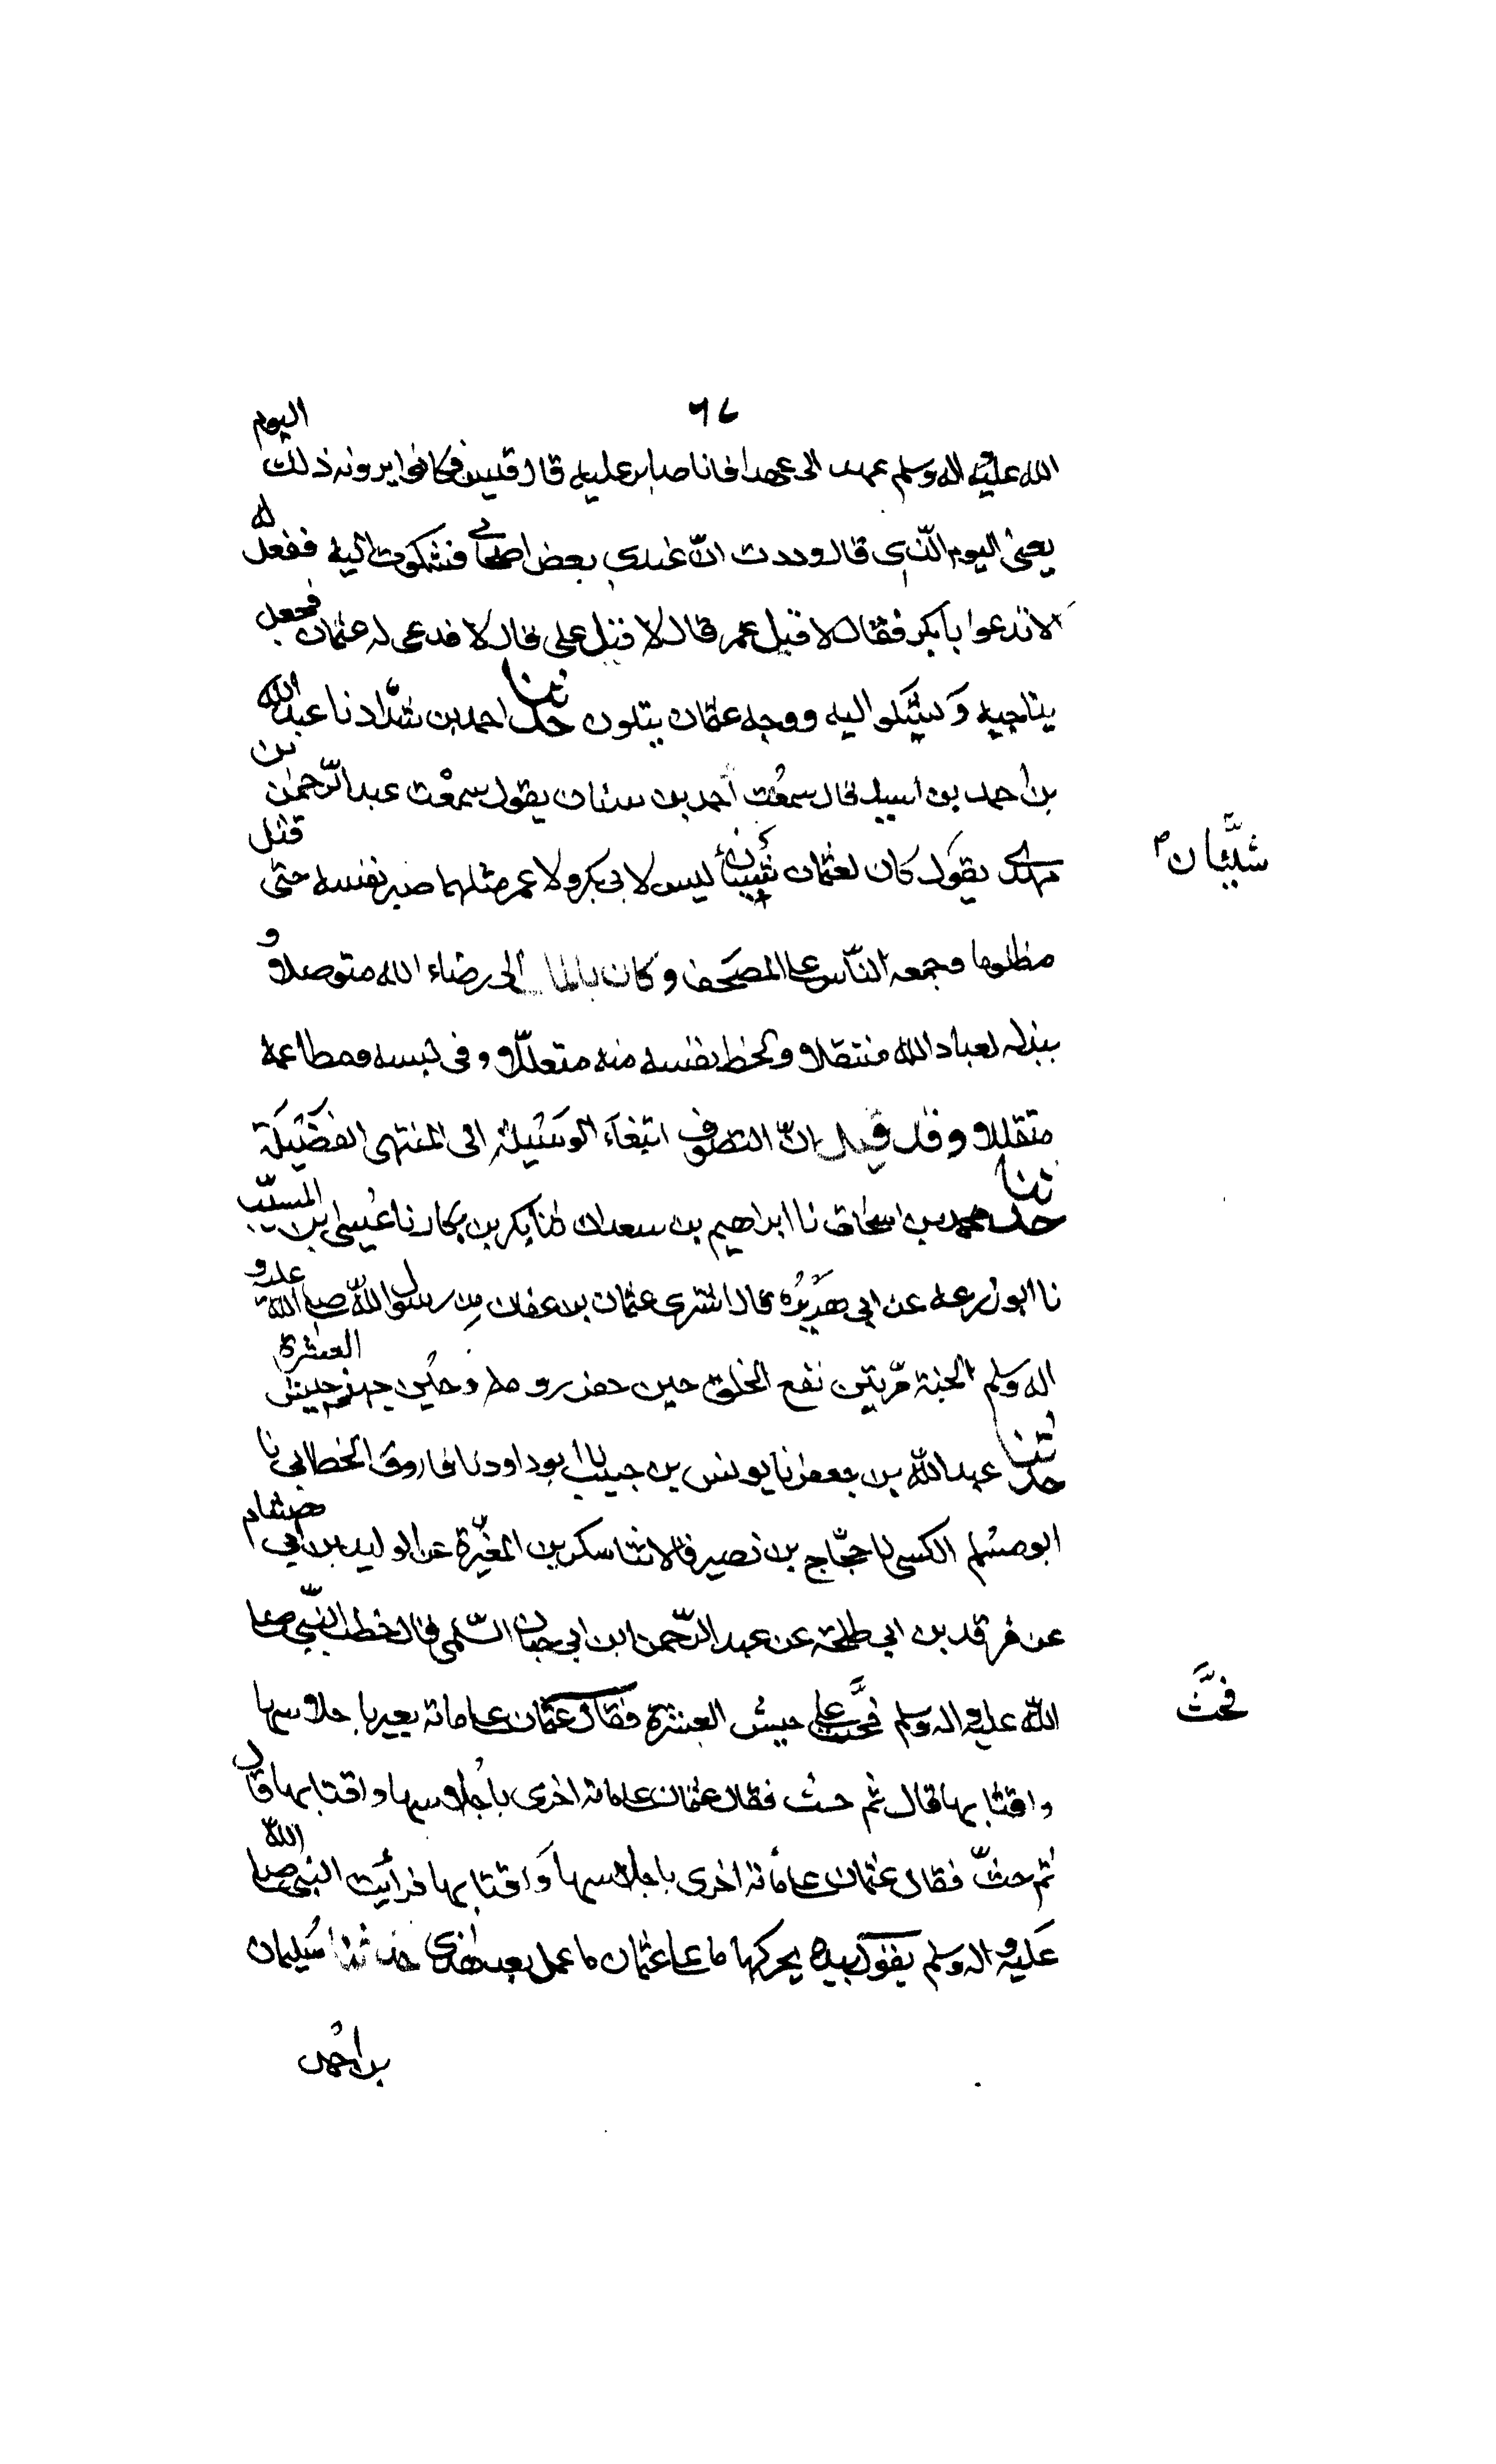 ٦٧
الله عليه واله وسلم عهد الى عهدا فانا صابر عليه قال قيس فكانوا يرونه ذلك اليوم
يعنى اليوم الذى قال وددت ان عندى بعض اصحابى فشكوت اليه ففعل له
الا ندعوا بابكر فقال لا قيل عمر قال لا قيل على قال لا فدعى له عثمان فجعل
يناجيه ويشكوا اليه ووجه عثمان يتلون حدثنا احمد بن شداد نا عبد الله
بن احمد بن اسيد قال سمعت احمد بن سنان يقول سمعت عبد الرحمن بن
مهدى يقول كان لعثمان شيئان ليس لابى بكر ولا عمر مثلهما صبر نفسه حتى قتل
شيئان
مظلوما وجمعه الناس على المصحف وكان بالمال الى رضاء الله متوصلا و
ببذله لعباد الله منتقلا وبحظ نفسه منه متعللا وفى لبسه ومطاعمه
متقللا وقد قيل ان التصوف ابتغاء الوسيلة الى المنتهى الفضيلة
حدثنا محمد بن اسحاق نا ابراهيم بن سعدان نا بكر بن بكار نا عيسى بن المسيب
نا ابو زرعه عن ابى هريره قال اشترى عثمان بن عفان من رسول الله صلى الله عليه و
اله وسلم الجنة مرتين نفع الخلق حين حفر رومة وحين جهز جيش العشرة
حدثنا عبد الله بن جعفر نا يونس بن حبيب نا ابو داود نا فاروق الخطابى نا
ابو مسلم الكسى نا حجاج بن نصير قالا نثنا سكر بن المغيرة عن الوليد بن ابى هشام
عن فرقد بن ابى طلحة عن عبد الرحمن ابن ابى حبان السلمى قال خطب النبى صلى
الله عليه واله وسلم فحث على جيش العشرة فقال عثمان على مائة بعير باحلاسها
فحث
واقتابها قال ثم حث فقال عثمان على مائة اخرى باحلاسها واقتابها قال
ثم حث فقال عثمان على مائة اخرى باحلاسها واقتابها فرأيت النبى صلى الله
عليه واله وسلم يقول بيده يحركها ما على عثمان ما عمل بعد هذى حدثنا سليمان
بن احمد